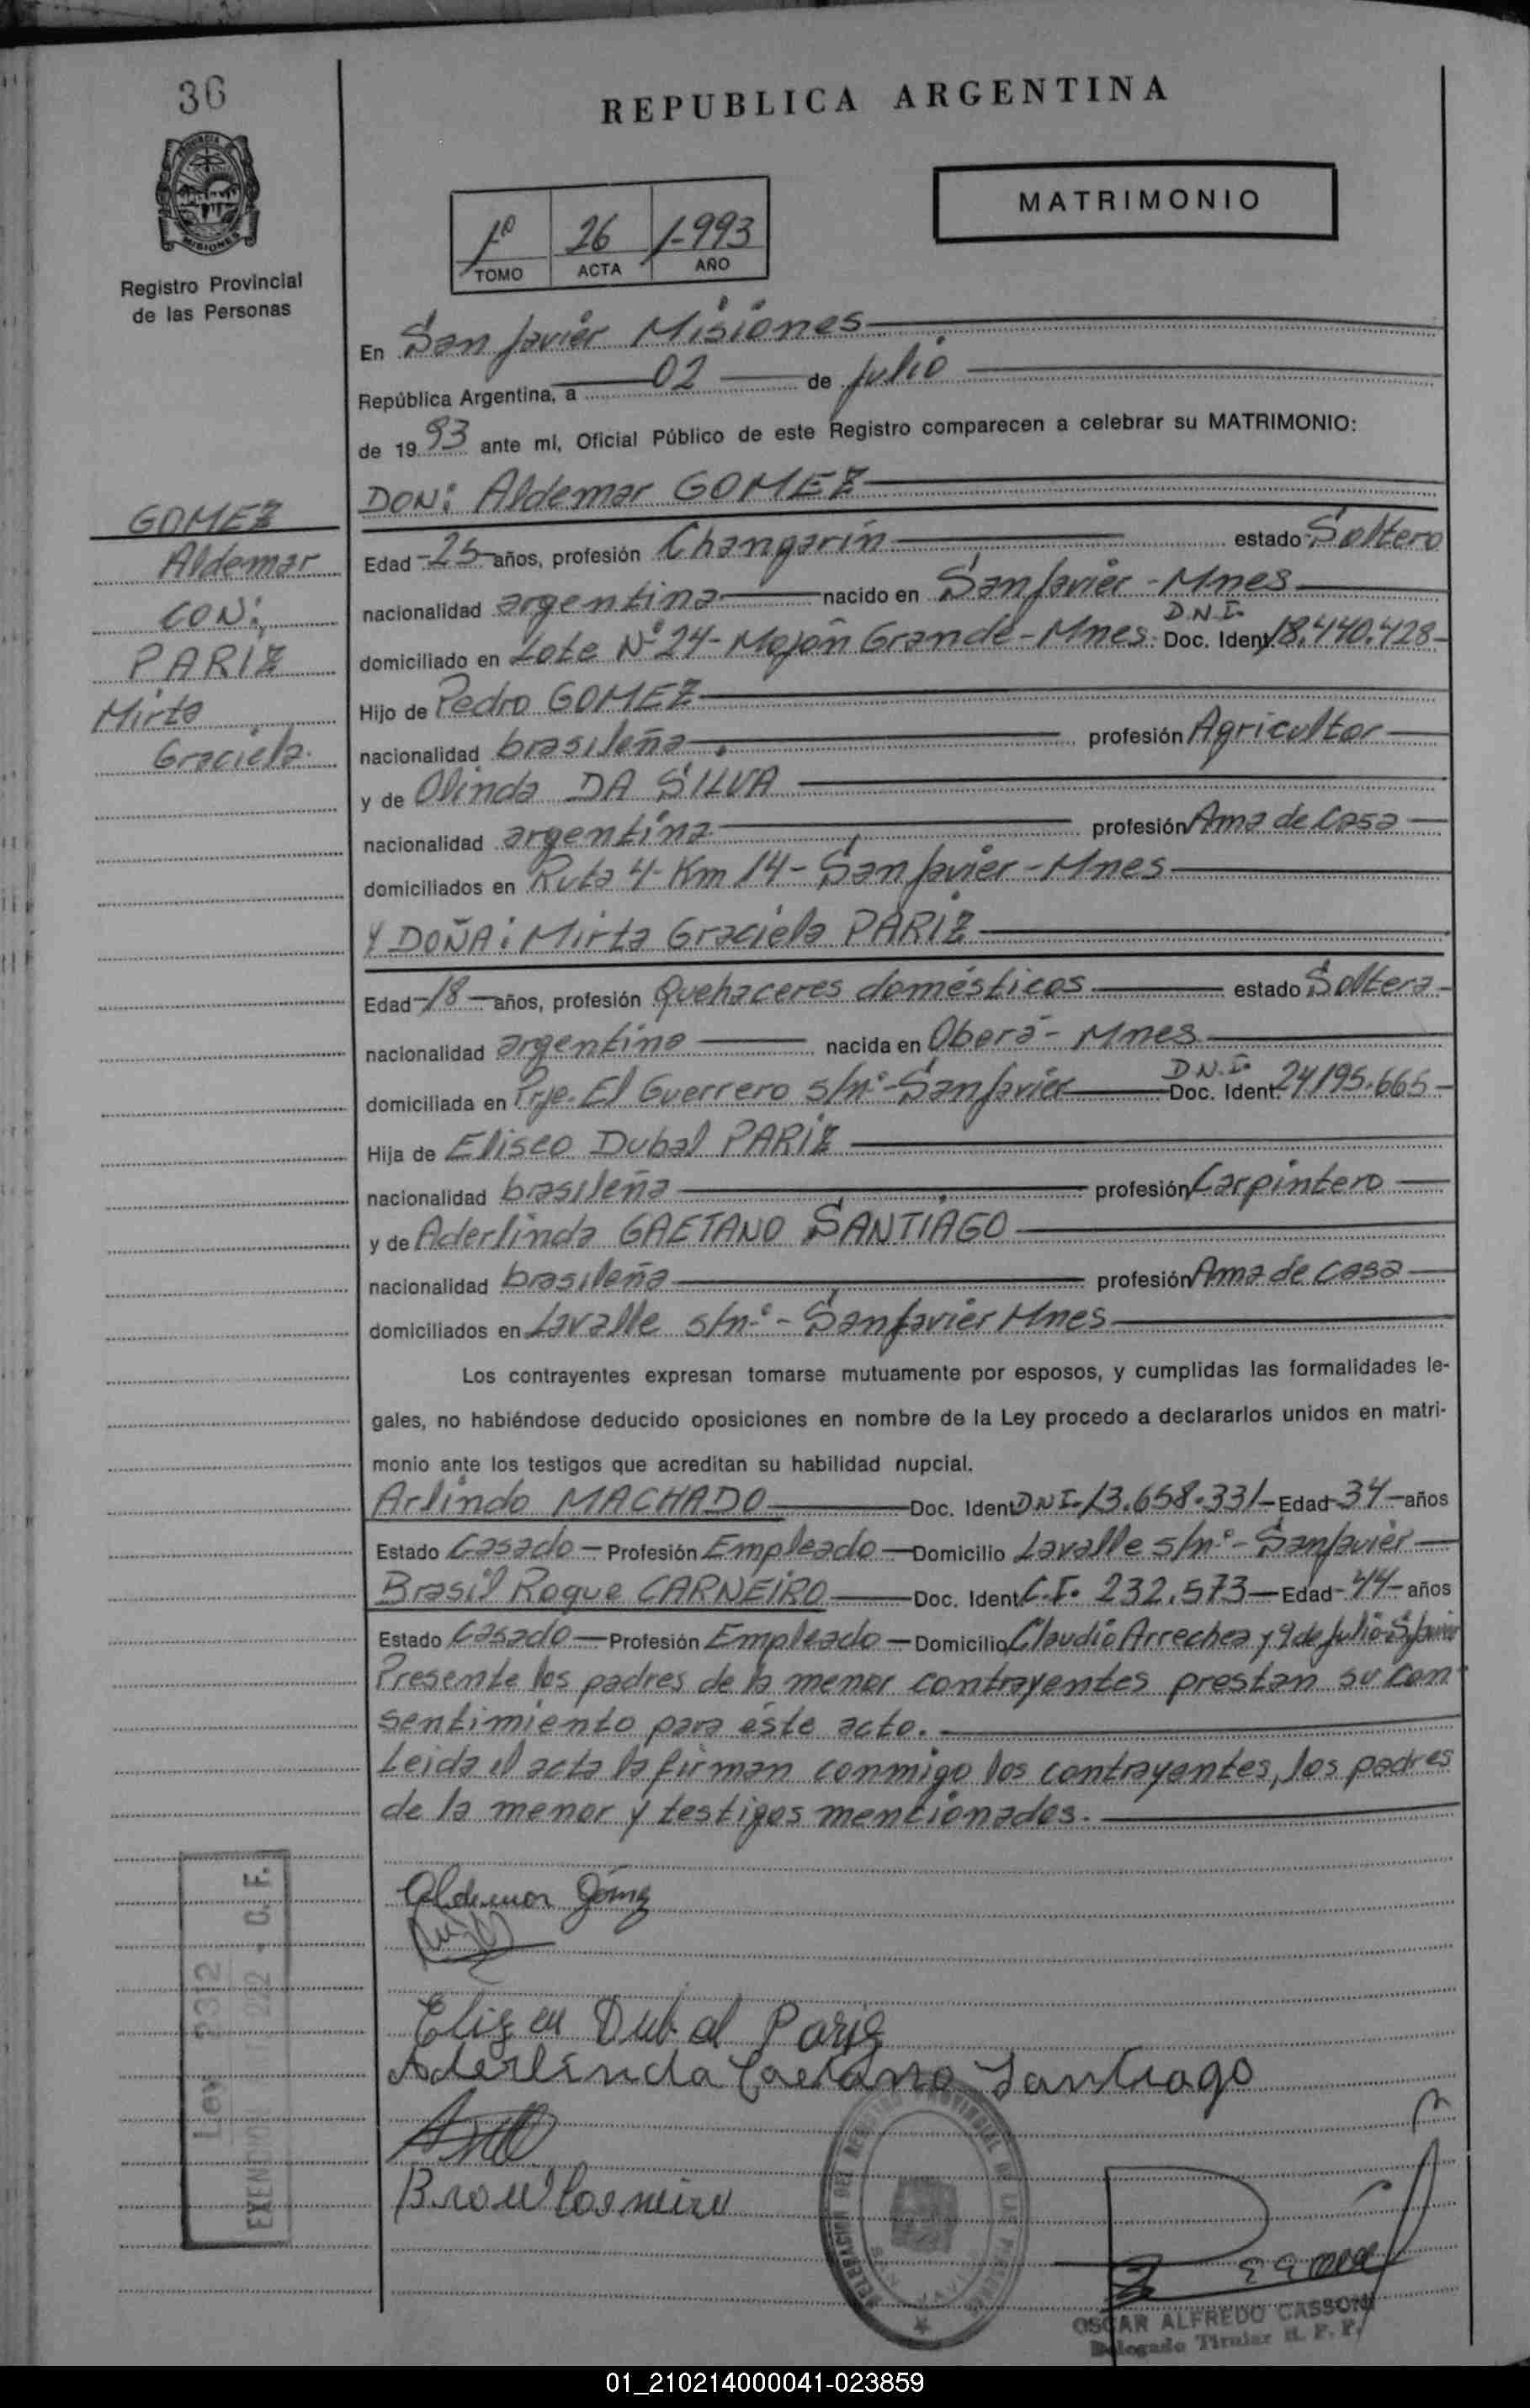 36
REPUBLICA ARGENTINA
PROVINCIA DE MISIONES
Registro Provincial
de las Personas
1º 26 1-993
TOMO ACTA AÑO
MATRIMONIO
En San Javier Misiones
República Argentina, a 02 de julio
de 19 93 ante mi, Oficial Público de este Registro comparecen a celebrar su MATRIMONIO:
GOMEZ
Aldemar
CON:
PARIZ
Mirta
Graciela.
DON: Aldemar GOMEZ
Edad -25- años, profesión Changarín estado Soltero
nacionalidad argentina nacido en San Javier - Mnes
domiciliado en Lote Nº 24- Mojón Grande - Mnes. D.N.I. Doc. Ident. 18.440.428-
Hijo de Pedro GOMEZ
nacionalidad brasileña profesión Agricultor
y de Olinda DA SILVA
nacionalidad argentina profesión Ama de Casa
domiciliados en Ruta 4- Km 14- San Javier - Mnes
Y DOÑA: Mirta Graciela PARIZ
Edad -18- años, profesión Quehaceres domésticos estado Soltera-
nacionalidad argentina nacida en Oberá - Mnes
domiciliada en Prje. El Guerrero s/nº- San Javier D.N.I. Doc. Ident. 24195.665-
Hija de Eliseo Dubal PARIZ
nacionalidad brasileña profesión Carpintero
y de Aderlinda GAETANO SANTIAGO
nacionalidad brasileña profesión Ama de casa
domiciliados en Lavalle s/nº- San Javier Mnes
Los contrayentes expresan tomarse mutuamente por esposos, y cumplidas las formalidades le-
gales, no habiéndose deducido oposiciones en nombre de la Ley procedo a declararlos unidos en matri-
monio ante los testigos que acreditan su habilidad nupcial.
Arlindo MACHADO Doc. Ident DNI- 13.658.331- Edad- 34- años
Estado Casado - Profesión Empleado - Domicilio Lavalle s/nº- San Javier
Brasil Roque CARNEIRO Doc. Ident C.I. 232.573- Edad- 44- años
Estado Casado - Profesión Empleado - Domicilio Claudio Arrechea y 9 de Julio-S. Javier
Presente los padres de la menor contrayentes prestan su con-
sentimiento para éste acto.
Leida el acta la firman conmigo los contrayentes, los padres
de la menor y testigos mencionados.
Aldemar Gómez
Elizeu Dubal Pariz
Aderlinda Caetano Santiago
Ley 2312
EXENCION 222 - C. F.
OSCAR ALFREDO CASSONI
Delegado Titular R. P. P.
01_210214000041-023859